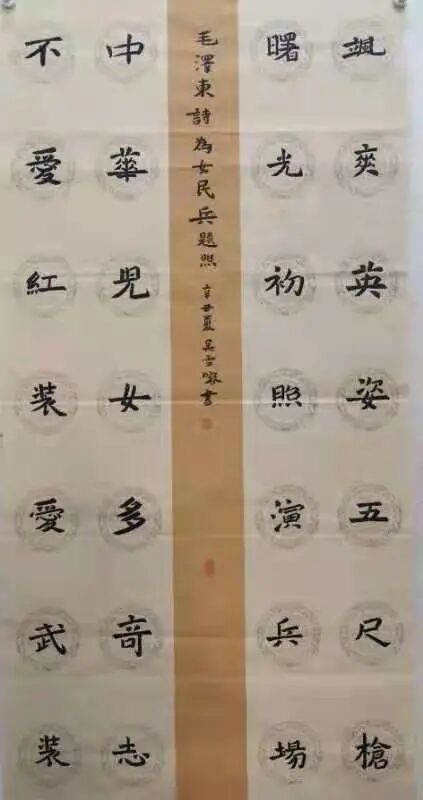 颯爽英姿五尺槍
曙光初照演兵場
毛澤東詩為女民兵題照 辛丑夏吳雪書
中華兒女多竒志
不愛紅裝愛武裝